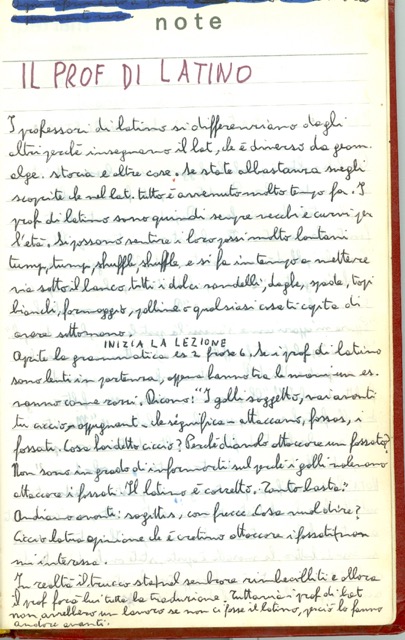 note
IL PROF DI LATINO
I professori di latino si differenziano dagli
altri perché insegnano il lat, che è diverso da geom.
alge. storia e altre cose. Se state abbastanza svegli
scoprite che nel lat. tutto è avvenuto molto tempo fa. I
prof di latino sono quindi sempre vecchi e curvi per
l'età. Si possono sentire i loro passi molto lontani
tump, tump, shuffle, shuffle, e si fa in tempo a mettere
via sotto il banco tutti i dolci randelli, daghe, spade, topi
bianchi, formaggio, palline o qualsiasi cosa ti capita di
avere sottomano.
INIZIA LA LEZIONE
Aprite la grammatica es 2 frase 6. Se i prof di latino
sono lenti in partenza, appena hanno tra le mani un es
vanno come razzi. Dicono: "I galli soggetto, vai avanti
tu ciccio, oppugnant - che significa - attaccano, fossas, i
fossati. Cosa hai detto ciccio? Perché diando attaccare un fossato?
Non sono in grado di informarti sul perché i galli volevano
attaccare i fossati. Il latino è corretto. Tanto basta."
Andiamo avanti: sagittis, con frecce. Cosa vuol dire?
Ciccio la tua opinione che è cretino attaccare i fossati non
mi interessa.
In realtà il trucco sta nel sembrare rimbecilliti e allora
il prof farà lui tutta la traduzione. Tuttavia i prof di lat
non avrebbero un lavoro se non ci fosse il latino, perciò lo fanno
andare avanti.